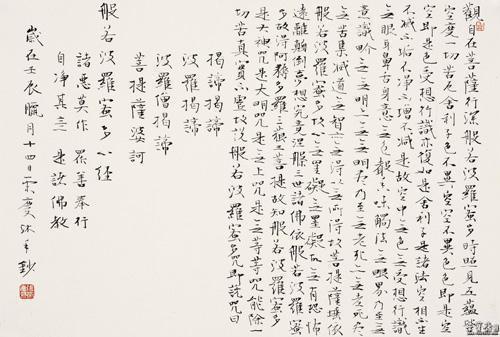 觀自在菩薩行深般若波羅蜜多時照見五蘊皆
空度一切苦厄舍利子色不異空空不異色色即是空
空即是色受想行識亦復如是舍利子是諸法空相不生
不滅不垢不淨不增不減是故空中无色无受想行識
无眼耳鼻舌身意无色聲香味觸法无眼界乃至无
意識界无无明亦无无明盡乃至无老死亦无老死盡
无苦集滅道无智亦无得以无所得故菩提薩埵依
般若波羅蜜多故心无罣礙无罣礙故无有恐怖
遠離顛倒夢想究竟涅槃三世諸佛依般若波羅蜜
多故得阿耨多羅三藐三菩提故知般若波羅蜜多
是大神咒是大明咒是无上咒是无等等咒能除一
切苦真實不虛故說般若波羅蜜多咒即說咒曰
揭諦揭諦
波羅揭諦
波羅僧揭諦
菩提薩婆訶
般若波羅蜜多心經
諸惡莫作 眾善奉行
自淨其意 是諸佛教
歲在壬辰臘月十四日 沐手鈔